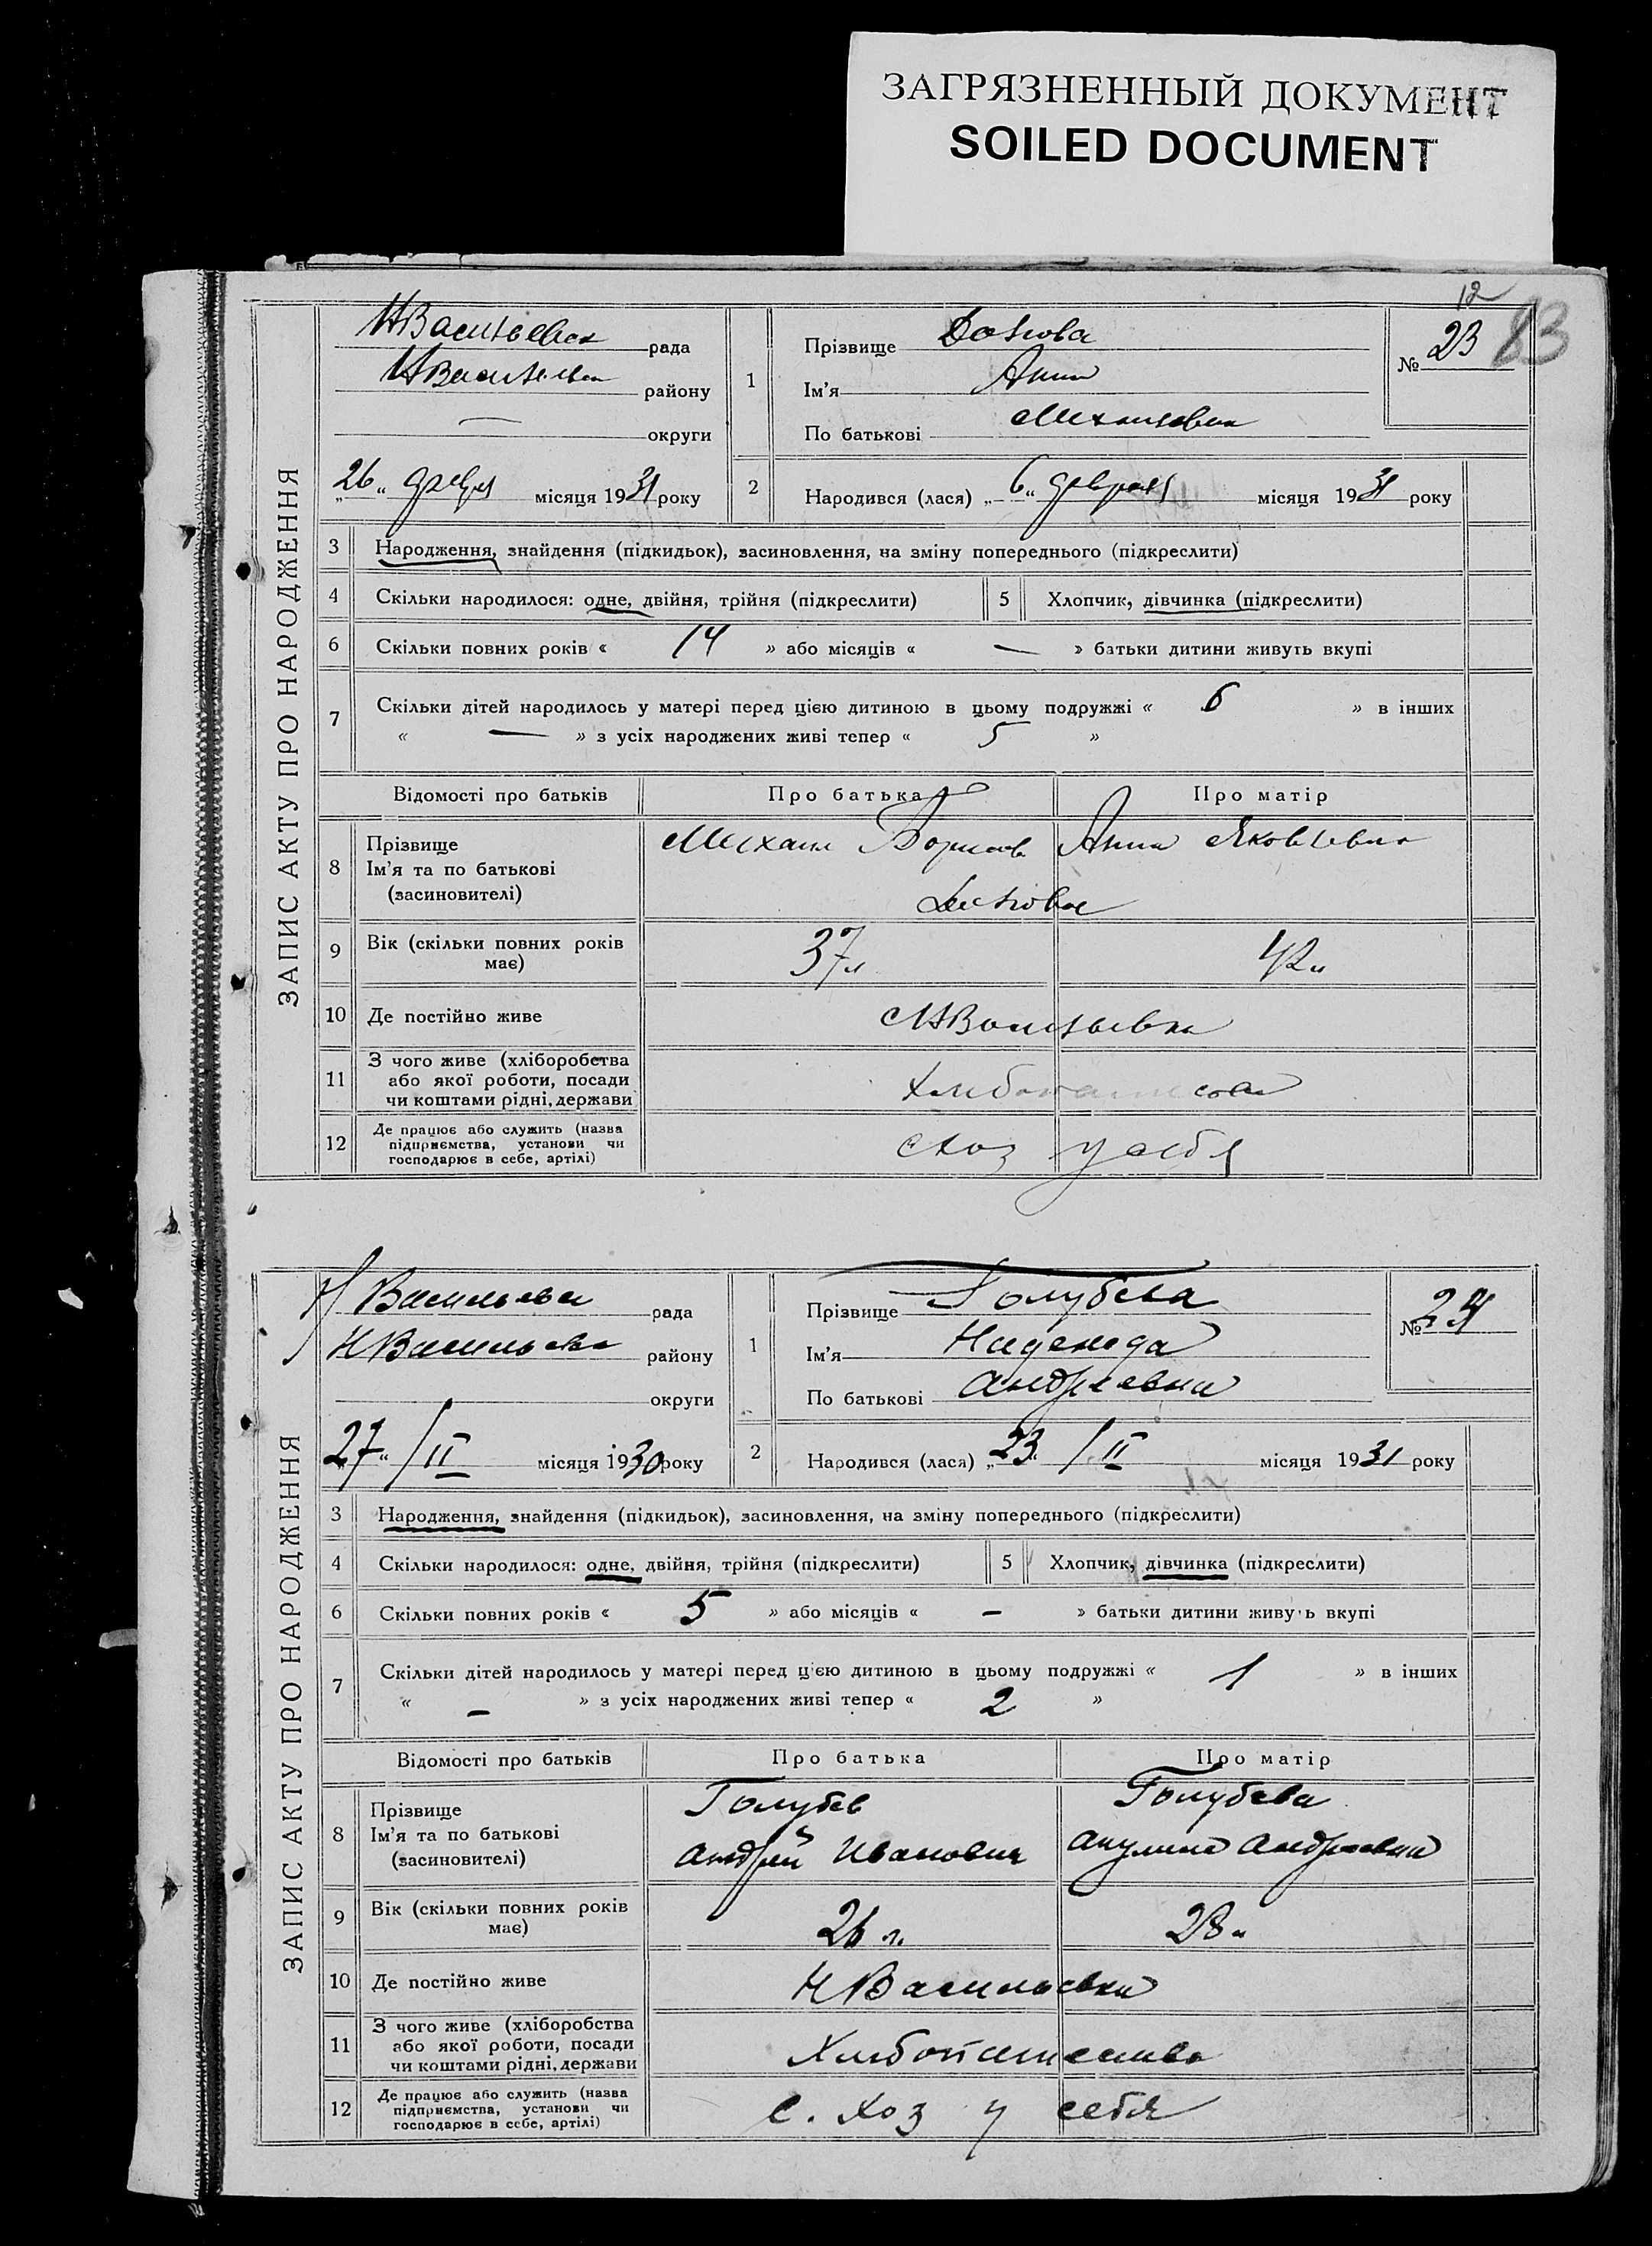 ЗАГРЯЗНЕННЫЙ ДОКУМЕНТ
SOILED DOCUMENT
12
83
ЗАПИС АКТУ ПРО НАРОДЖЕННЯ
рада
району
— округи
„26“ місяця 1931 року
1
Прізвище
Ім'я Анна
По батькові
№ 23
2
Народився (лася) „6“ февраля місяця 1931 року
3 Народження, знайдення (підкидьок), засиновлення, на зміну попереднього (підкреслити)
4 Скільки народилося: одне, двійня, трійня (підкреслити)
5 Хлопчик, дівчинка (підкреслити)
6 Скільки повних років « 14 » або місяців « — » батьки дитини живуть вкупі
7 Скільки дітей народилось у матері перед цією дитиною в цьому подружжі « 6 » в інших
« — » з усіх народжених живі тепер « 5 »
Відомості про батьків Про батька Про матір
8 Прізвище
Ім'я та по батькові
(засиновителі)
Михаил Анна Яковлевна
9 Вік (скільки повних років
має)
37 л 42 л
10 Де постійно живе НВасильевка
11 З чого живе (хліборобства
або якої роботи, посади
чи коштами рідні, держави
12 Де працює або служить (назва
підприємства, установи чи
господарює в себе, артілі)
схоз у себя
ЗАПИС АКТУ ПРО НАРОДЖЕННЯ
рада
району
округи
„27“ /II місяця 1930 року
1
Прізвище Голубева
Ім'я Надежда
По батькові Андреевна
№ 24
2
Народився (лася) „23“ /II місяця 1931 року
3 Народження, знайдення (підкидьок), засиновлення, на зміну попереднього (підкреслити)
4 Скільки народилося: одне, двійня, трійня (підкреслити)
5 Хлопчик, дівчинка (підкреслити)
6 Скільки повних років « 5 » або місяців « – » батьки дитини живуть вкупі
7 Скільки дітей народилось у матері перед цією дитиною в цьому подружжі « 1 » в інших
« – » з усіх народжених живі тепер « 2 »
Відомості про батьків Про батька Про матір
8 Прізвище
Ім'я та по батькові
(засиновителі)
Голубев Голубева
Андрей Иванович Акулина Андреевна
9 Вік (скільки повних років
має)
26 л. 28 л
10 Де постійно живе Н Васильевка
11 З чого живе (хліборобства
або якої роботи, посади
чи коштами рідні, держави
Хлебопашество
12 Де працює або служить (назва
підприємства, установи чи
господарює в себе, артілі)
с. хоз у себя